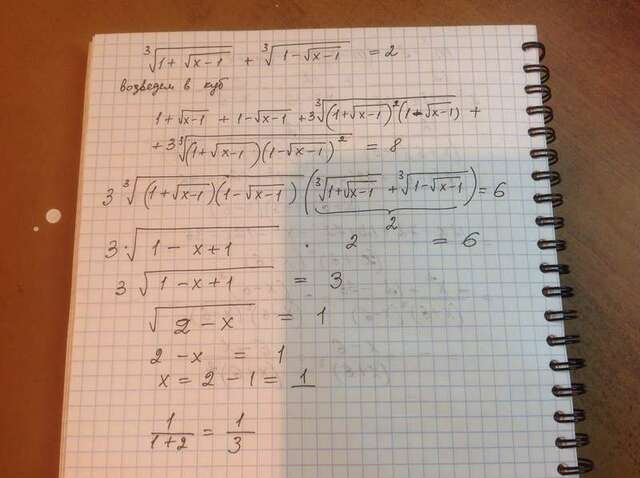 ∛(1+√(x-1)) + ∛(1-√(x-1)) = 2
возведем в куб
1+√(x-1) + 1-√(x-1) + 3∛((1+√(x-1))²(1-√(x-1))) +
+3∛((1+√(x-1))(1-√(x-1))²) = 8
3∛((1+√(x-1))(1-√(x-1))) (∛(1+√(x-1)) + ∛(1-√(x-1))) = 6
2
3·√(1-x+1) · 2 = 6
3√(1-x+1) = 3
√(2-x) = 1
2-x = 1
x = 2-1 = 1
1/(1+2) = 1/3